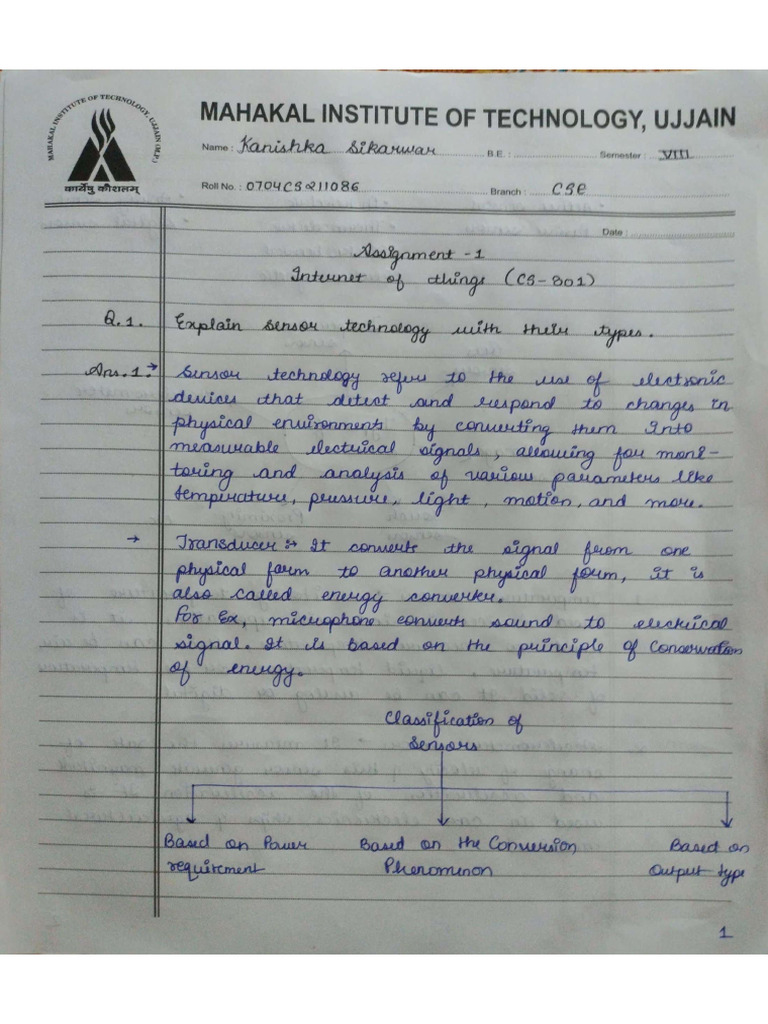 MAHAKAL INSTITUTE OF TECHNOLOGY, UJJAIN (M.P.)
कार्येषु कौशलम्
MAHAKAL INSTITUTE OF TECHNOLOGY, UJJAIN
Name : Kanishka Sikarwar B.E. : Semester : VIII
Roll No. : 0704CS211086 Branch : CSE
Date :
Assignment -1
Internet of things (CS-801)
Q.1. Explain sensor technology with their types.
Ans.1:→ Sensor technology refers to the use of electronic
devices that detect and respond to changes in
physical environments by converting them into
measurable electrical signals, allowing for moni-
toring and analysis of various parameters like
temperature, pressure, light, motion, and more.
→ Transducer:→ It converts the signal from one
physical form to another physical form, it is
also called energy converter.
For Ex, microphone converts sound to electrical
signal. It is based on the principle of Conservation
of energy.
Classification of
Sensors
Based on Power Based on the Conversion Based on
requirement Phenominon Output type
1